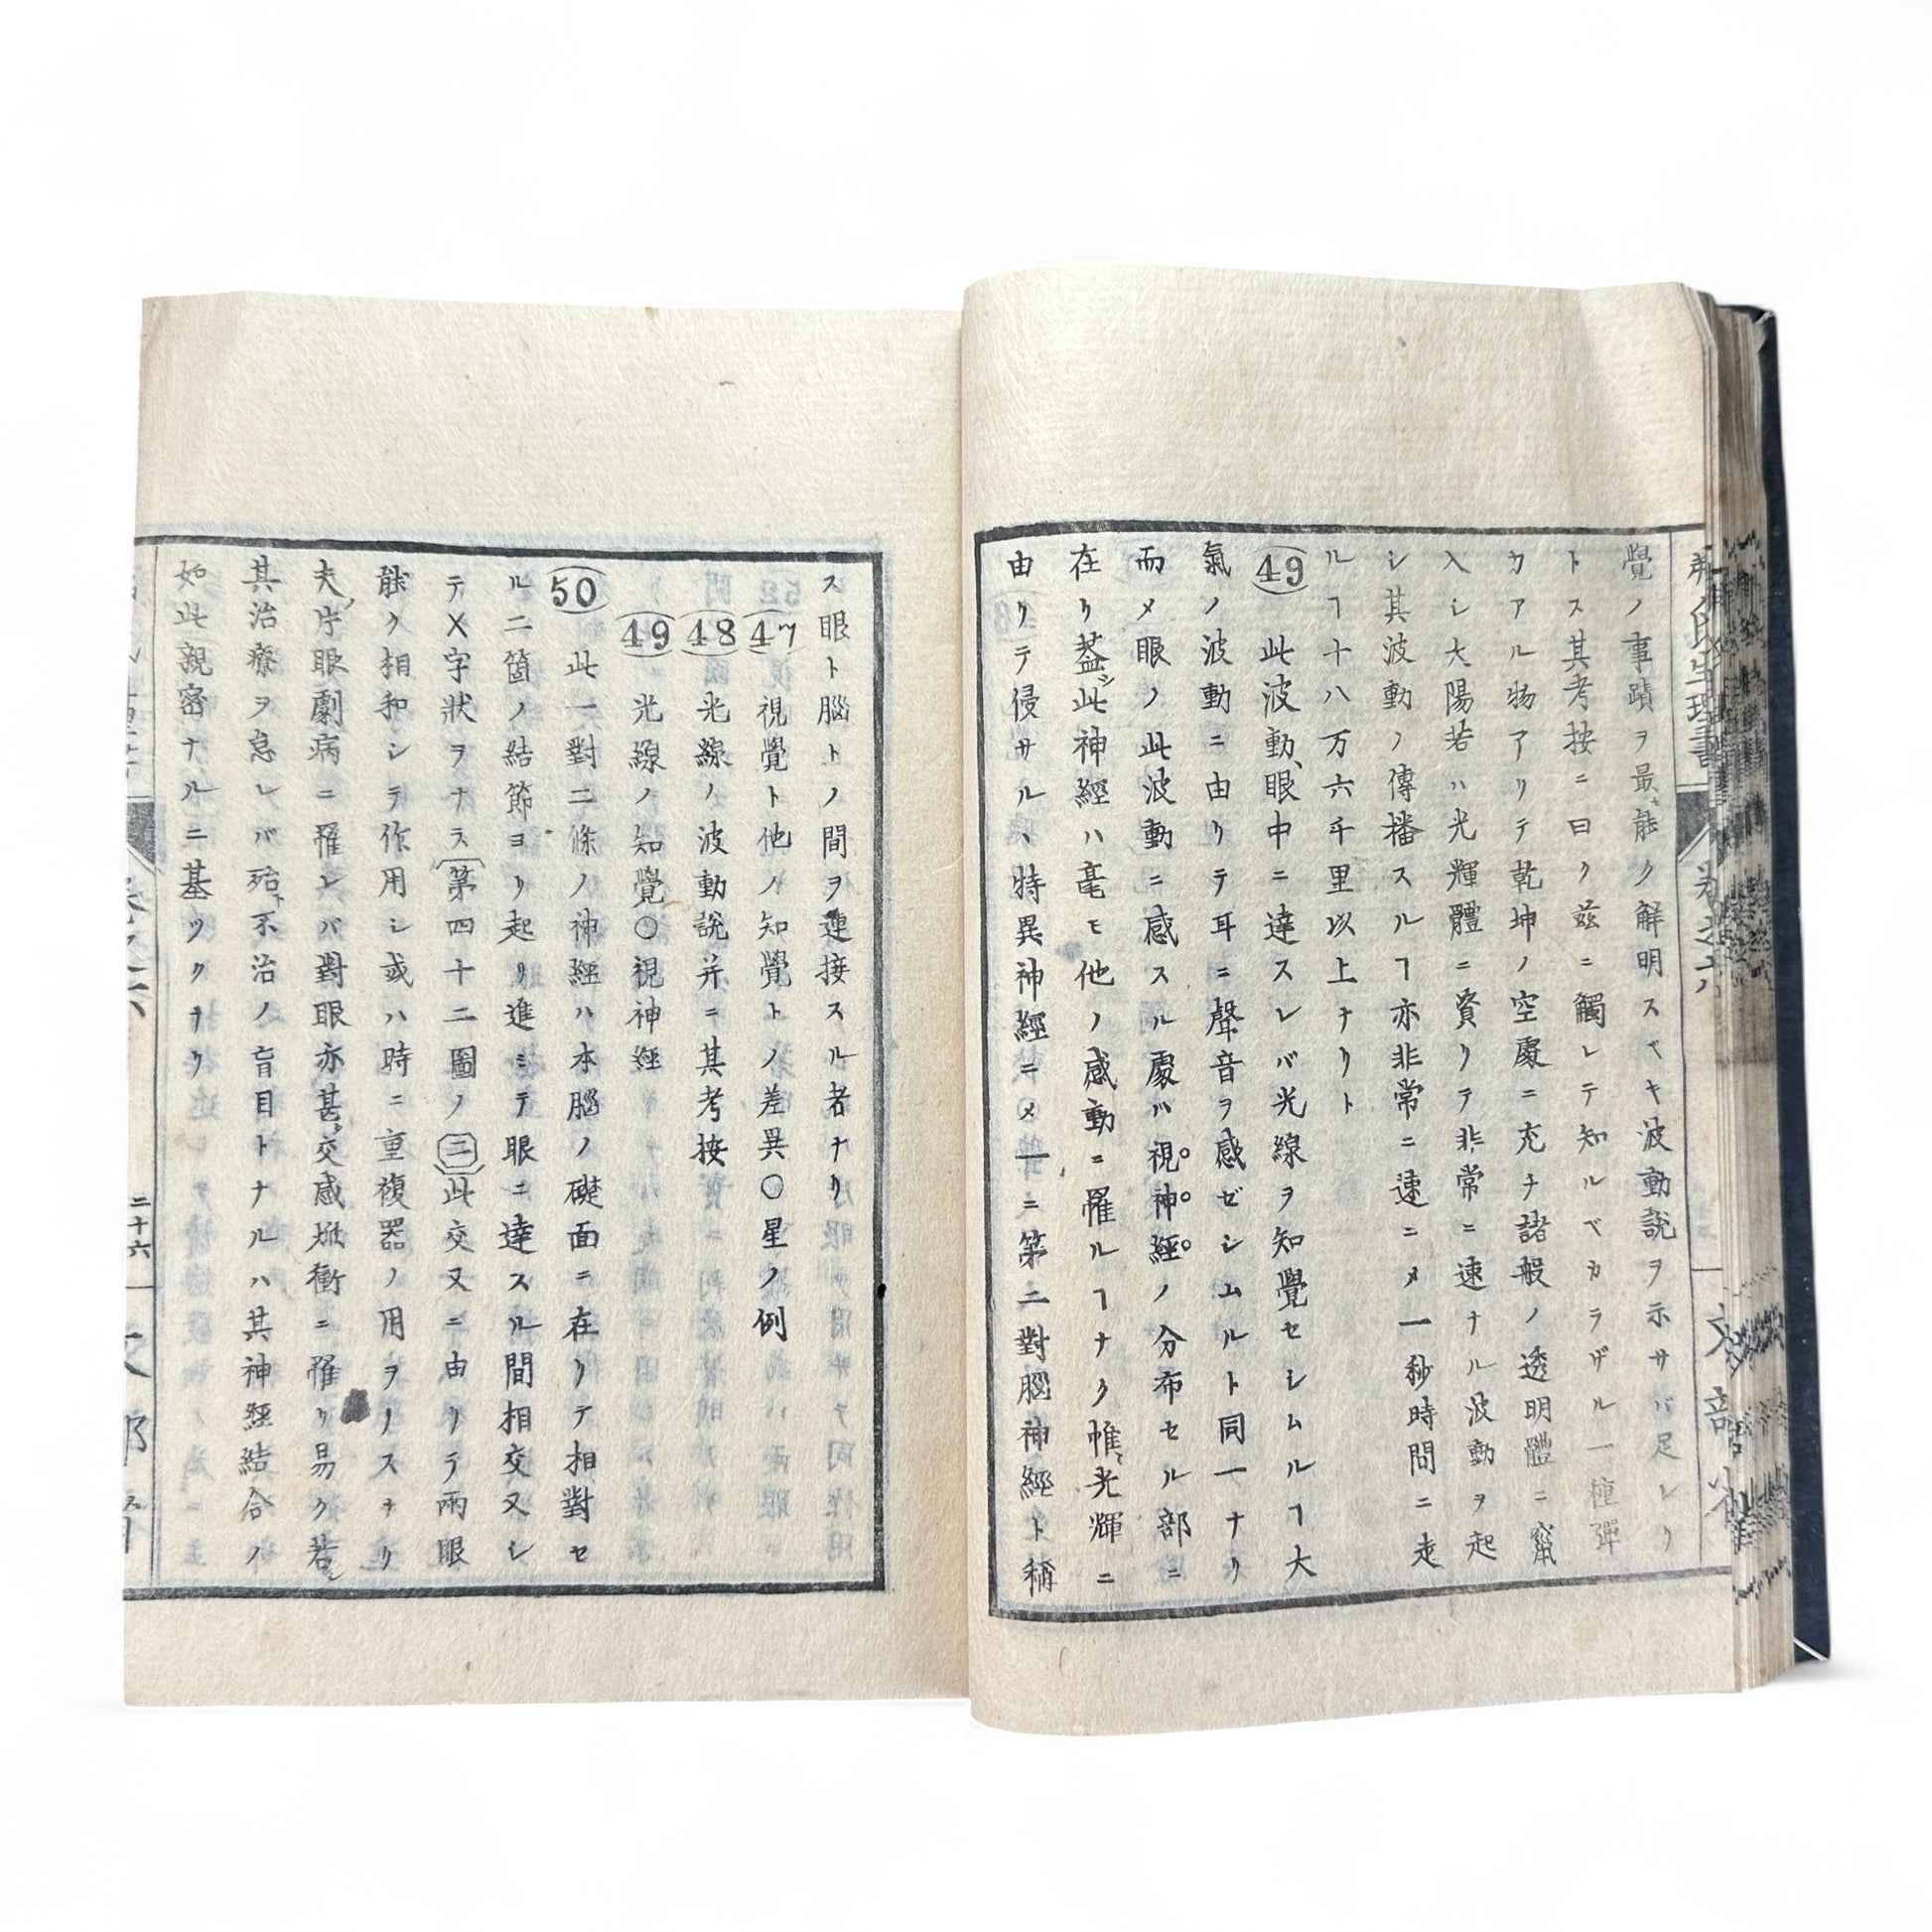 覺ノ事蹟ヲ最モ能ク解明スベキ波動說ヲ示サバ足レリ
トス其考按ニ曰ク玆ニ觸レテ知ルベカラザル一種彈
力アル物アリテ乾坤ノ空處ニ充チ諸般ノ透明體ニ竄
入シ大陽若ハ光輝體ニ資リテ非常ニ速ナル波動ヲ起
シ其波動ノ傳播スルヿ亦非常ニ速ニメ一秒時間ニ走
ルヿ十八万六千里以上ナリト
49 此波動、眼中ニ達スレバ光線ヲ知覺セシムルヿ大
氣ノ波動ニ由リテ耳ニ聲音ヲ感ゼシムルト同一ナリ
而メ眼ノ此波動ニ感スル處ハ視神經ノ分布セル部ニ
在リ葢シ此神經ハ毫モ他ノ感動ニ罹ルヿナク惟光輝ニ
由リテ侵サル、特異神經ニメ一ニ第二對腦神經ト稱
ス眼ト腦トノ間ヲ連接スル者ナリ
47 視覺ト他ノ知覺トノ差異〇星ノ例
48 光線ノ波動說并ニ其考按
49 光線ノ知覺〇視神經
50 此一對二條ノ神經ハ本腦ノ礎面ニ在リテ相對セ
ル二箇ノ結節ヨリ起リ進ミテ眼ニ達スル間相交叉シ
テX字狀ヲナス第四十二圖ノ三此交叉ニ由リテ兩眼
能ク相和シテ作用シ或ハ時ニ重複器ノ用ヲノスナリ
夫レ片眼劇病ニ罹レバ對眼亦甚ク交感焮衝ニ罹リ易ク若シ
其治療ヲ怠レバ殆ト不治ノ盲目トナルハ其神經結合ノ
如此親密ナルニ基ツクナリ
二十六